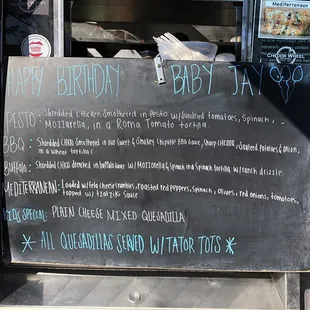 Mediterranean
CHICKEN WHEEL
HAPPY BIRTHDAY BABY JAY
PESTO: Shredded chicken smothered in pesto w/sundried tomatoes, Spinach,
Mozzarella, in a Roma Tomato tortilla
BBQ: Shredded chicken smothered in our sweet & smokey Chipotle BBQ Sauce, Sharp CHEDDAR, roasted potatoes & onion,
in a wheat tortilla
BUFFALO: Shredded chicken drenched in buffalo sauce w/Mozzarella & Spinach in a Spinach tortilla w/ranch drizzle.
MEDITERRANEAN: Loaded w/feta cheese crumbles, roasted red peppers, spinach, olives, red onions, tomatoes,
topped w/ tzatziki sauce
KIDS SPECIAL: PLAIN CHEESE MIXED QUESADILLA
* ALL QUESADILLAS SERVED W/TATOR TOTS *